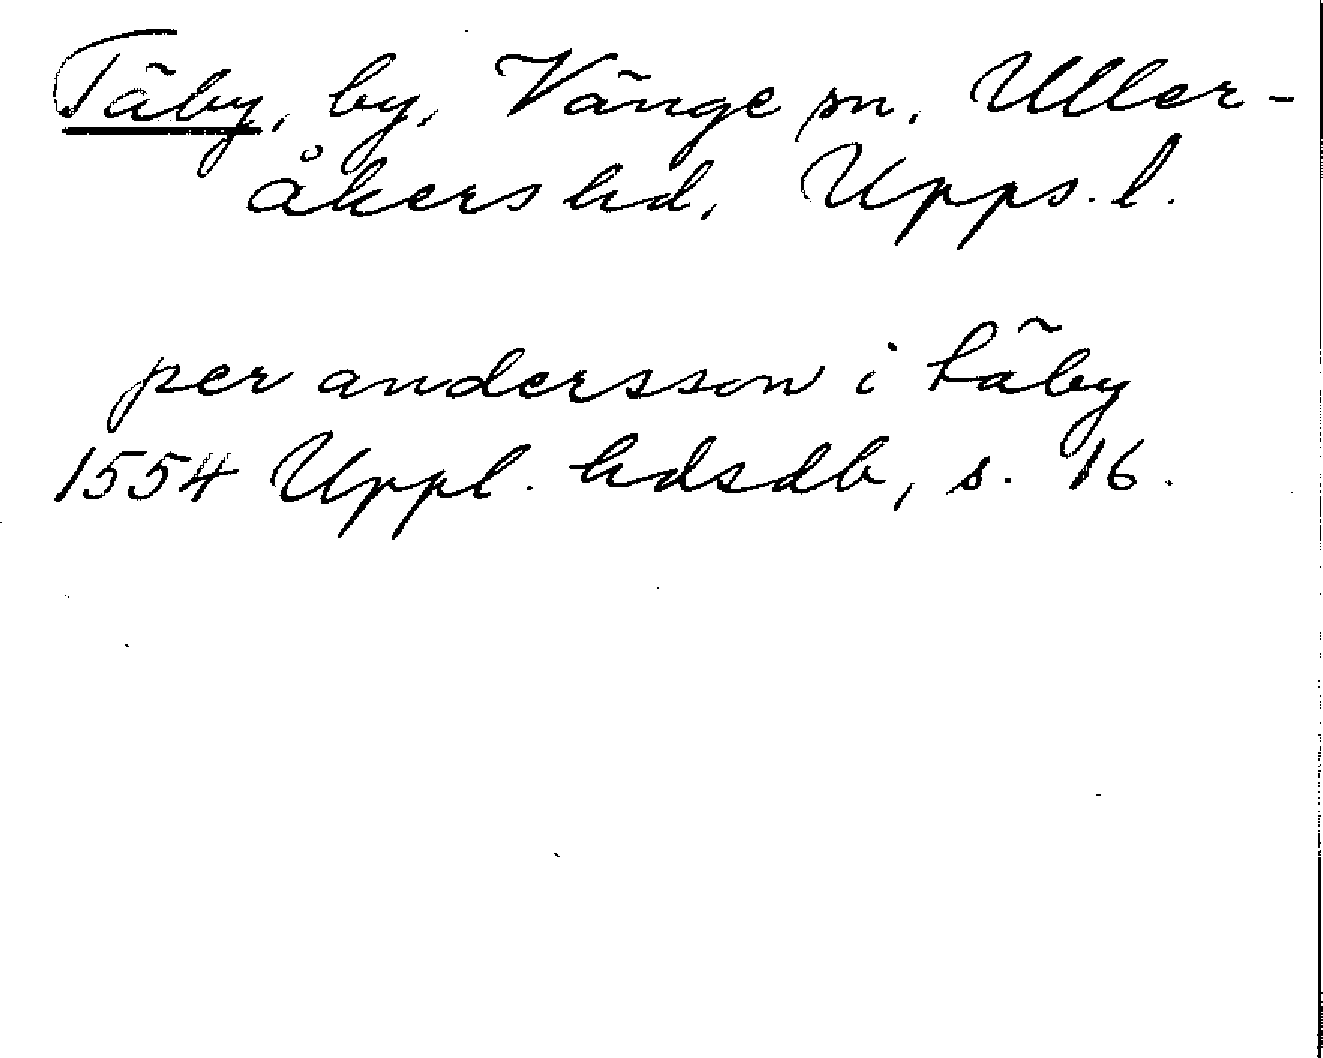 Täby, by, Vänge sn. Uller-
åkers hd, Upps. l.
per andersson i täby
1554 Uppl. hdsdb, s. 16.